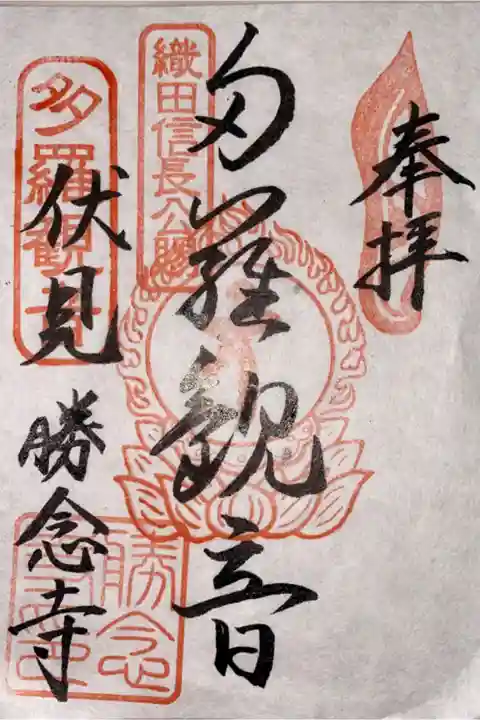 奉拝
織田信長公賜
多羅観音
多羅観音
伏見
勝念寺
勝念寺印